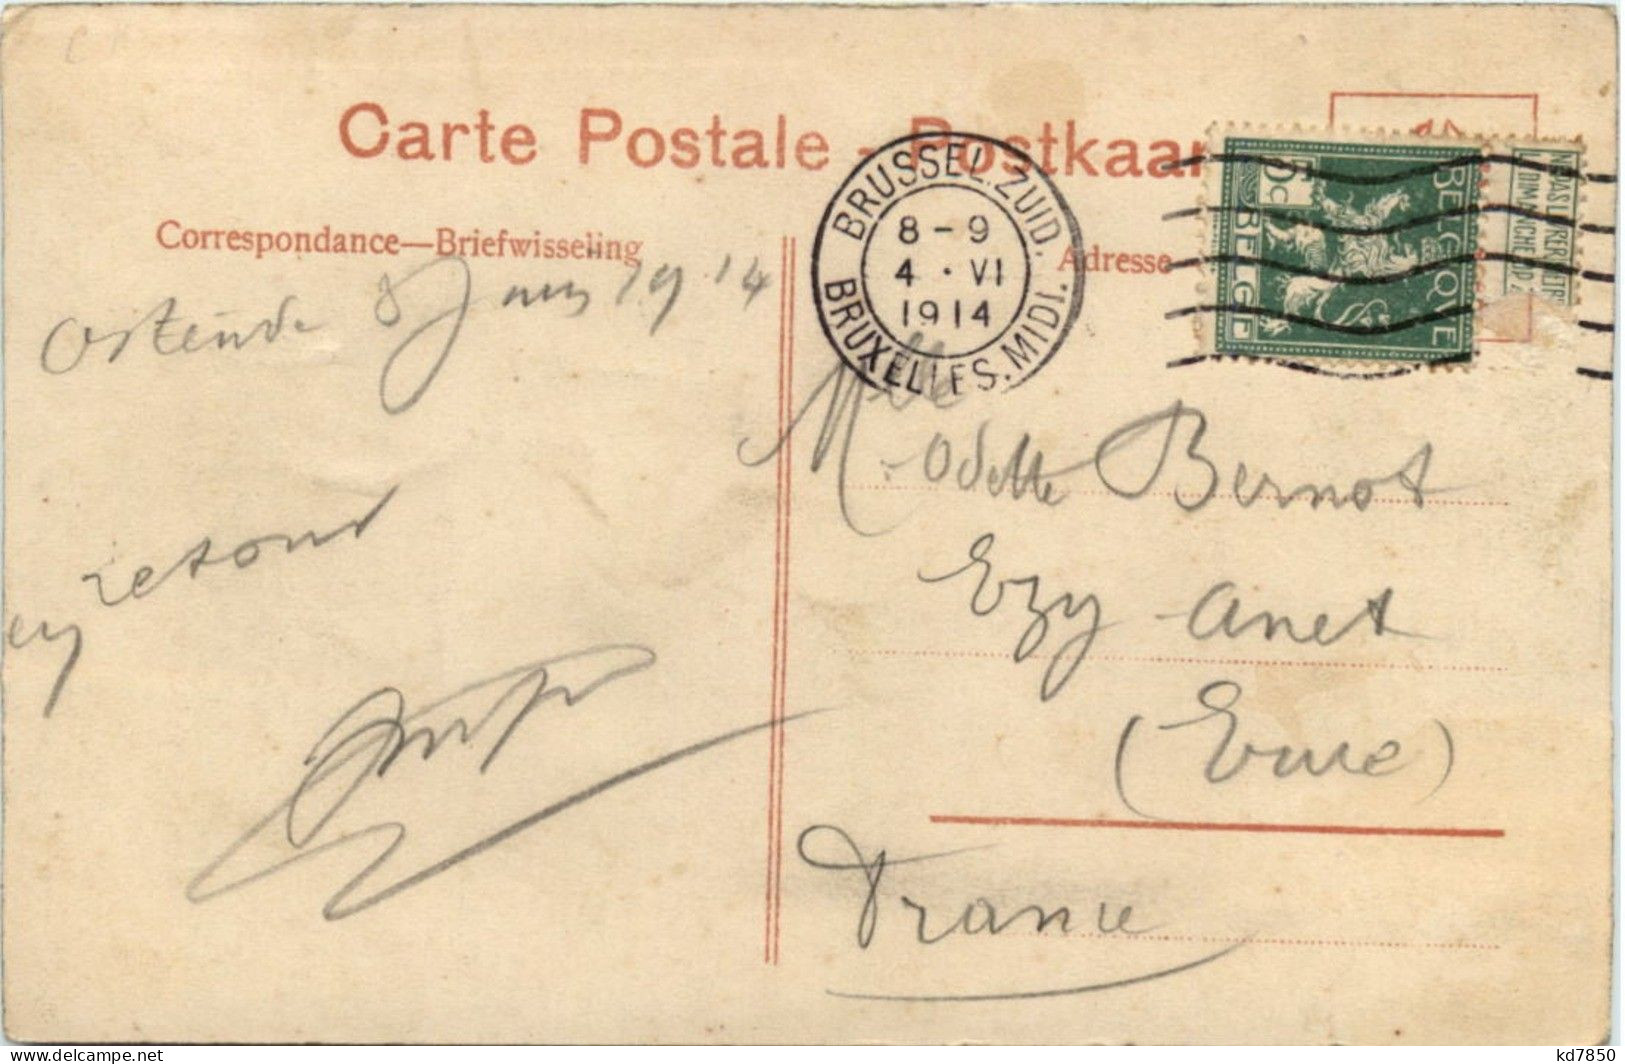 Carte Postale - Postkaar
Correspondance—Briefwisseling
Adresse
BRUSSEL. ZUID.
8 - 9
4 · VI
1914
BRUXELLES. MIDI.
5
c
BELGIQVE
BELGIË
DIMANCHE
Ostende 8 juin 1914
retour
Mlle
Odette Bernot
Ezy Anet
(Eure)
France
kd7850